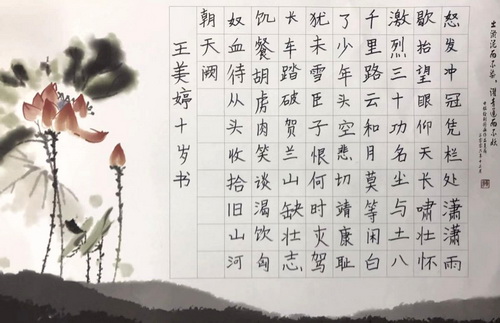 出淤泥而不染，濯清涟而不妖
怒发冲冠凭栏处潇潇雨
歇抬望眼仰天长啸壮怀
激烈三十功名尘与土八
千里路云和月莫等闲白
了少年头空悲切靖康耻
犹未雪臣子恨何时灭驾
长车踏破贺兰山缺壮志
饥餐胡虏肉笑谈渴饮匈
奴血待从头收拾旧山河
朝天阙
王美婷十岁书